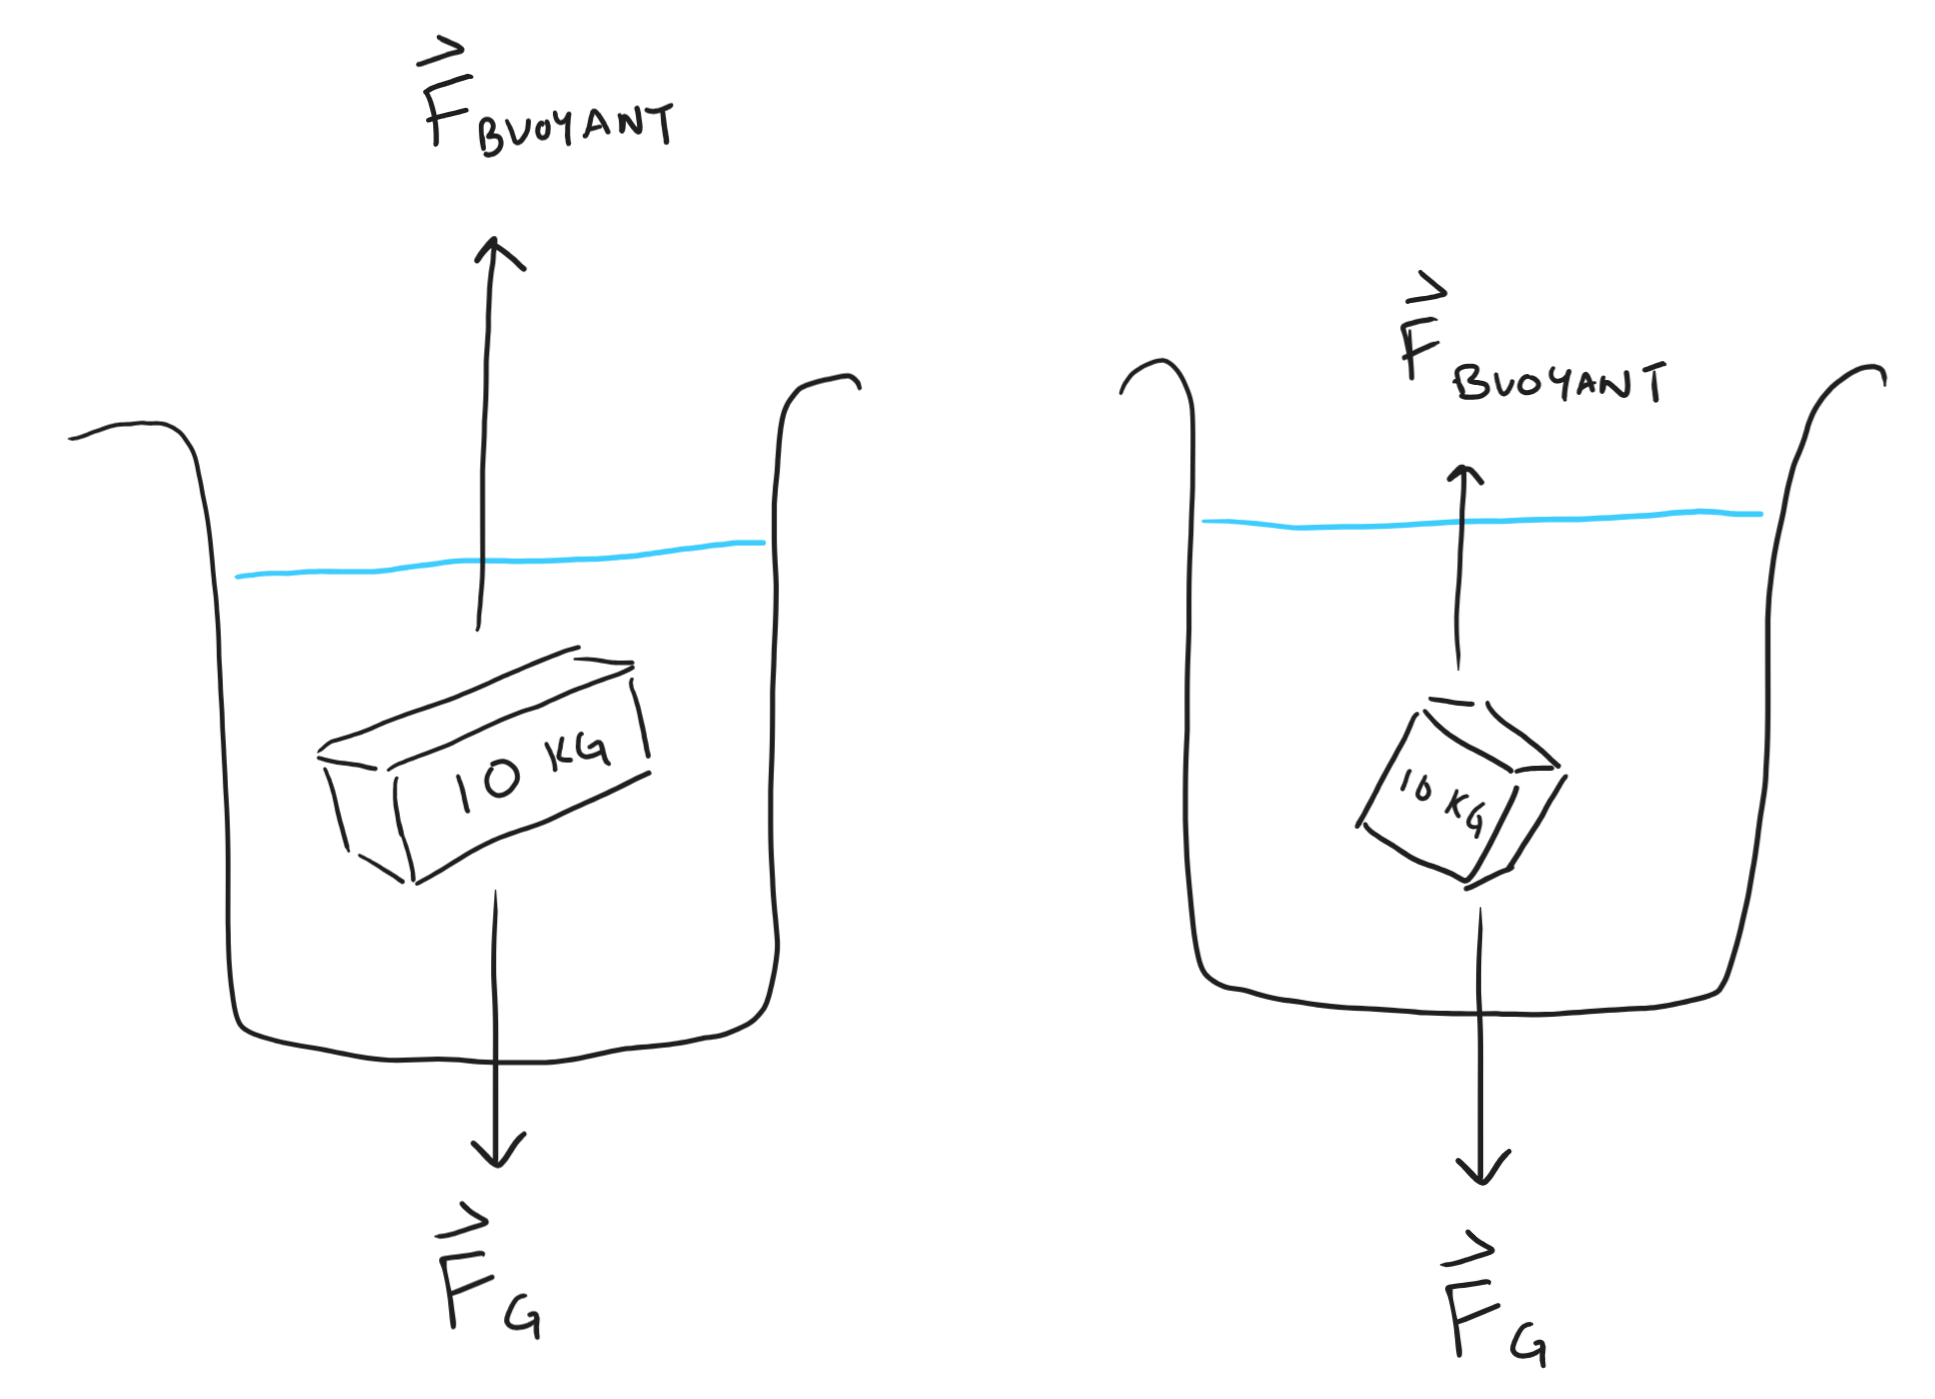 F BUOYANT
10 KG
F G
F BUOYANT
10 KG
F G